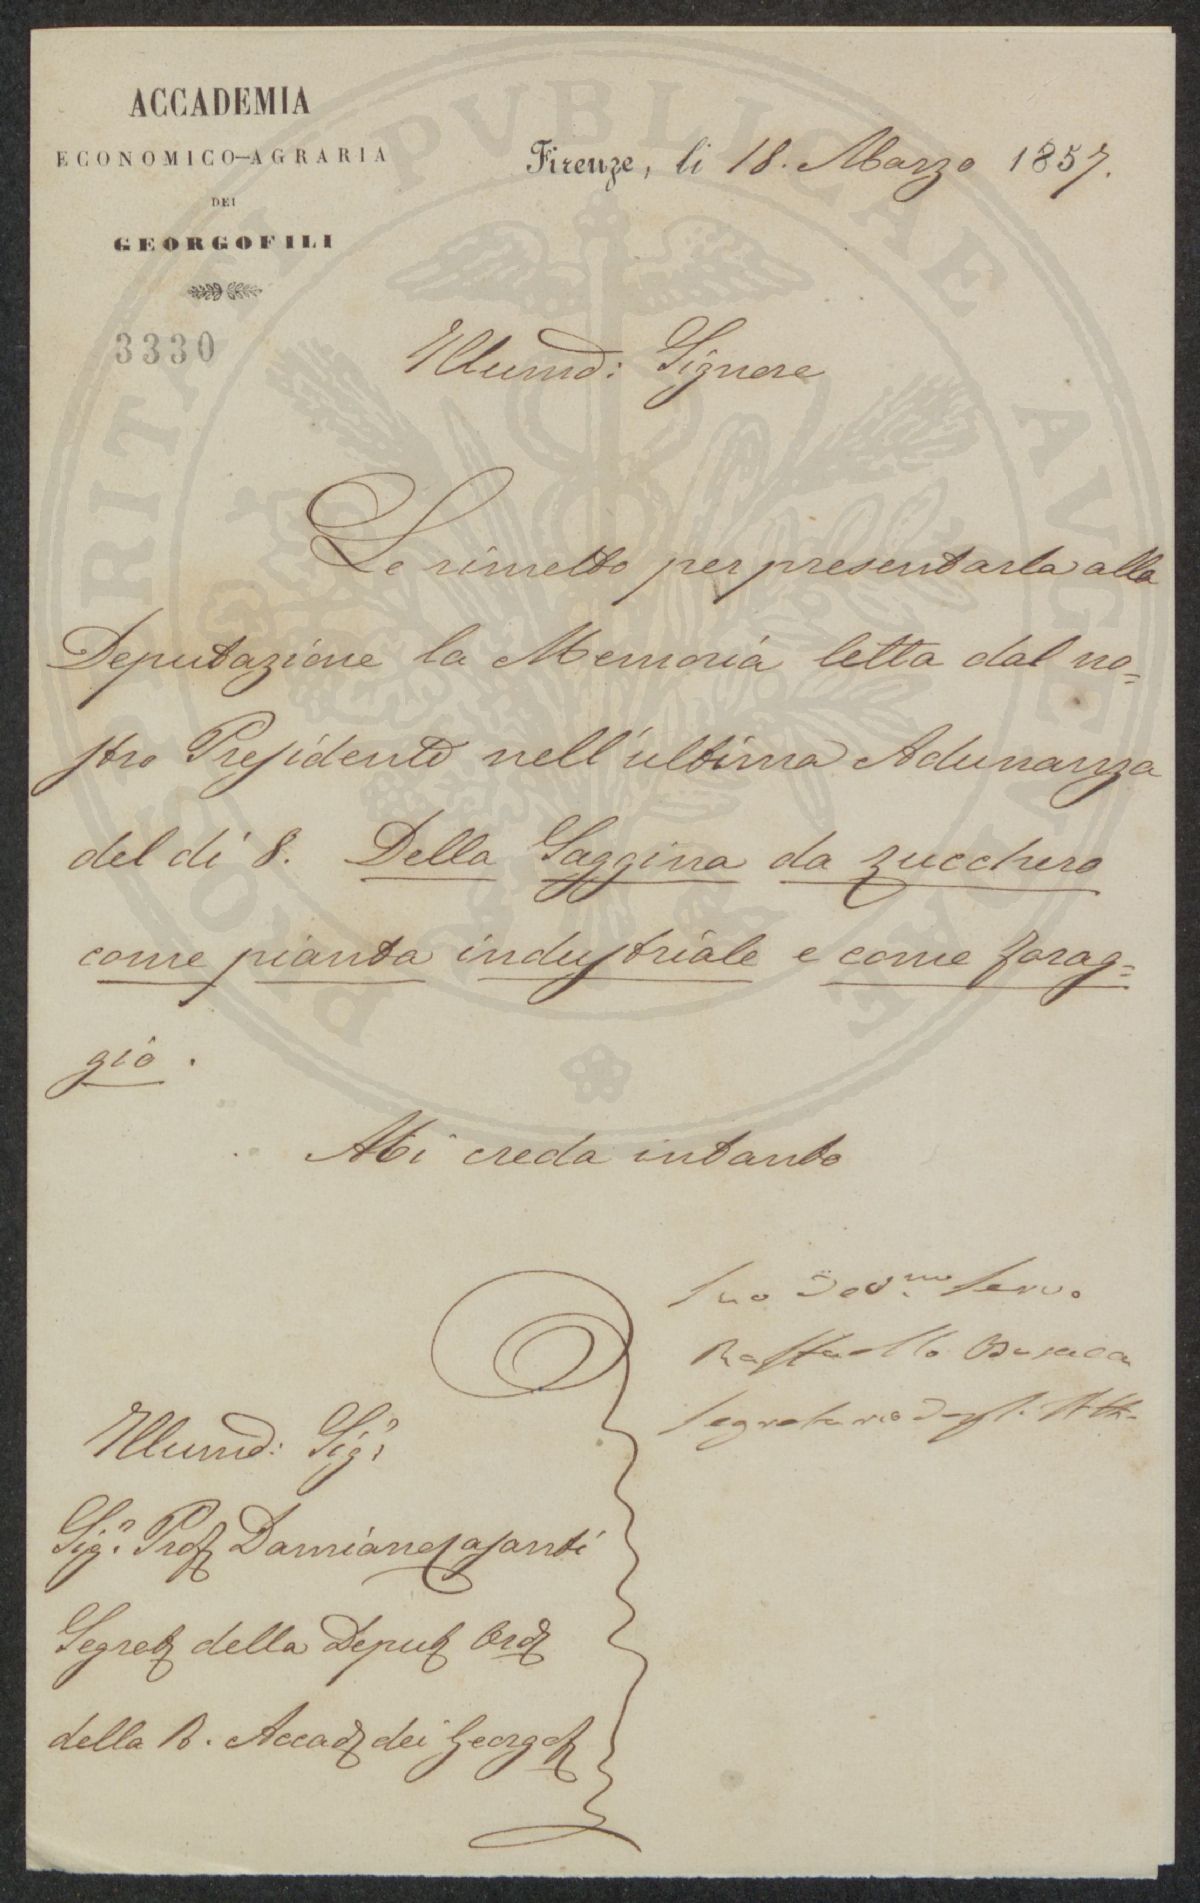 ACCADEMIA
ECONOMICO-AGRARIA
DEI
GEORGOFILI
Firenze, li 18. Marzo 1857.
3330
Illumo: Signore
Le rimetto per presentarla alla
Deputazione la Memoria letta dal no=
stro Presidente nell'ultima Adunanza
del di 8. Della Saggina da zucchero
come pianta industriale e come forag=
gio.
Mi creda intanto
Suo Devmo Servo
Raffaello Busacca
Segretario degli Atti
Illumo: Sigr
Sigr. Prof Damiano Casanti
Segret della Deput Ord
della R. Accad dei Georgof
PROSPERITATI PVBLICAE AVGENDAE